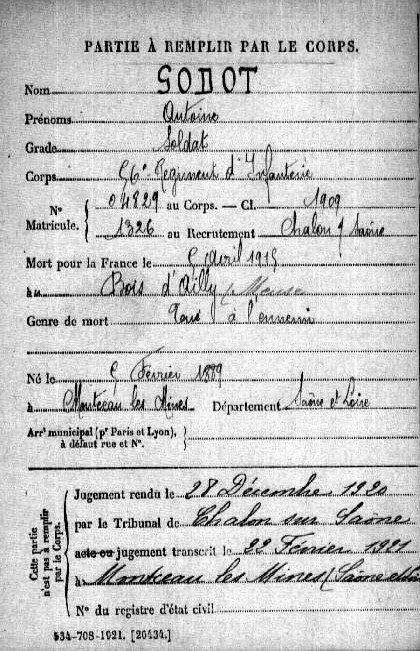 PARTIE À REMPLIR PAR LE CORPS.
Nom GODOT
Prénoms Antoine
Grade Soldat
Corps 56e Régiment d'Infanterie
N° Matricule. { 04829 au Corps. — Cl. 1909
1326 au Recrutement Chalon s/ Saône
Mort pour la France le 5 Avril 1915
à Bois d'Ailly / Meuse
Genre de mort Tué à l'ennemi
Né le 5 Février 1889
à Montceau les Mines Département Saône et Loire
Arrt municipal (pr Paris et Lyon), à défaut rue et N°. }
Cette partie n'est pas à remplir par le Corps. {
Jugement rendu le 28 Décembre 1920
par le Tribunal de Chalon sur Saône
acte ou jugement transcrit le 22 Février 1921
à Montceau les Mines (Saône et Loire
N° du registre d'état civil
534-708-1921. [20434.]